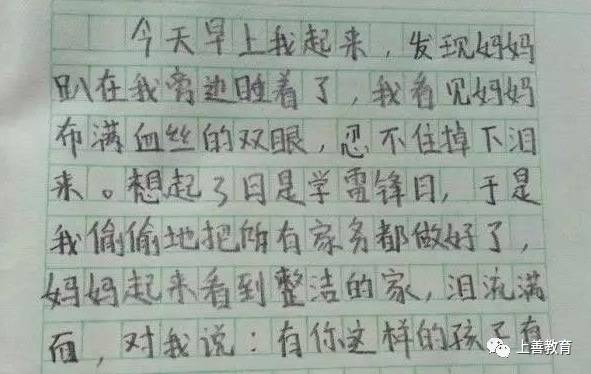 今天早上我起来，发现妈妈
趴在我旁边睡着了，我看见妈妈
布满血丝的双眼，忍不住掉下泪
来。想起了今日是学雷锋日，于是
我偷偷地把所有家务都做好了，
妈妈起来看到整洁的家，泪流满
面，对我说：有你这样的孩子有
上善教育